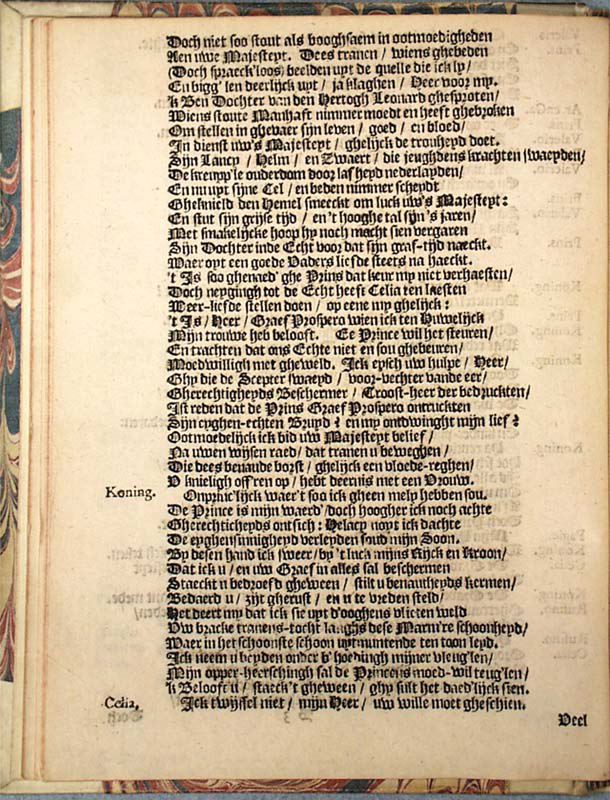 Doch niet soo stout als booghsaem in ootmoedigheden
Aen uwe Majesteyt. Dees tranen / wiens ghebeden
(Doch spraeck'loos) beelden uyt de quelle die ick ly /
En bigg'len deerlijck uyt / ja klaghen / Heer voor my.
'k Ben Dochter van den Hertogh Leonard ghesproten /
Wiens stoute Manhaft nimmer moedt en heeft ghebroken
Om stellen in ghevaer sijn leven / goed / en bloed /
In dienst uw's Majesteyt / ghelijck de trouheyd doet.
Sijn Lancy / Helm / en Zwaert / die jeughdens krachten swaeyden /
De kreup'le ouderdom door las heyd nederlayden /
En nu uyt sijne Cel / en beden nimmer scheydt
Gheknield den Hemel smeeckt om luck uw's Majesteyt:
En stut sijn grijse tijd / en 't hooghe tal sijn's jaren /
Met smakelijcke hoop hy noch macht sien vergaren
Sijn Dochter inde Echt voor dat sijn graf-tijd naeckt.
Waer oyt een goede Vaders liefde steets na haeckt.
't Is soo ghenaed'ghe Prins dat keur my niet verhaesten /
Doch neyging h tot de Echt heeft Celia ten laesten
Weer-liefde stellen doen / op eene my ghelijck:
't Is / Heer / Graef Prospero wien ick ten Huwelijck
Mijn trouwe heb belooft. Ee Prince wil het steuren /
En trachten dat ons Echte niet en sou ghebeuren /
Moedwilligh met gheweld. Ick eysch uw hulpe / Heer /
Ghy die de Scepter swaeyd / voor-vechter vande eer /
Gherechtigheyds Beschermer / Troost-heer der bedruckten /
Ist reden dat de Prins Graef Prospero ontruckten
Sijn eyghen-echten Bruyd? en my ontdwinght mijn lief?
Ootmoedelijck ick bid uw Majesteyt belief /
Na uwen wijsen raed / dat tranen u beweghen /
Die dees benaude borst / ghelijck een vloede-reghen /
V knieligh off'ren op / hebt deernis met een Vrouw.
Koning. Onprinc'lijck waer't soo ick gheen melp hebben sou.
De Prince is mijn waerd' / doch hoogher ick noch achte
Gherechticheyds ontsich: Helacy noyt ick dachte
De eyghensinnigheyd verleyden soud mijn Soon.
By desen hand ick sweer / by 't luck mijns Rijck en Kroon /
Dat ick u / en uw Graef in alles sal beschermen
Staeckt u bedroefd gheween / stilt u benautheyds kermen /
Bedaerd u / zijt gherust / en u te vreden steld /
Het deert my dat ick sie uyt d'ooghens vlieten weld
Uw bracke tranens-tocht langhs dese Marm're schoonheyd /
Waer in het schoonste schoon uytmuntende ten toon leyd.
Ick neem u beyden onder b'hoedingh mijner vleug'len /
Mijn opper-heerschingh sal de Princens moed-wil teug'len /
'k Belooft u / staeck't gheween / ghy sult het daed'lijck sien.
Celia, Ick twijffel niet / mijn Heer / uw wille moet gheschien.
Deel